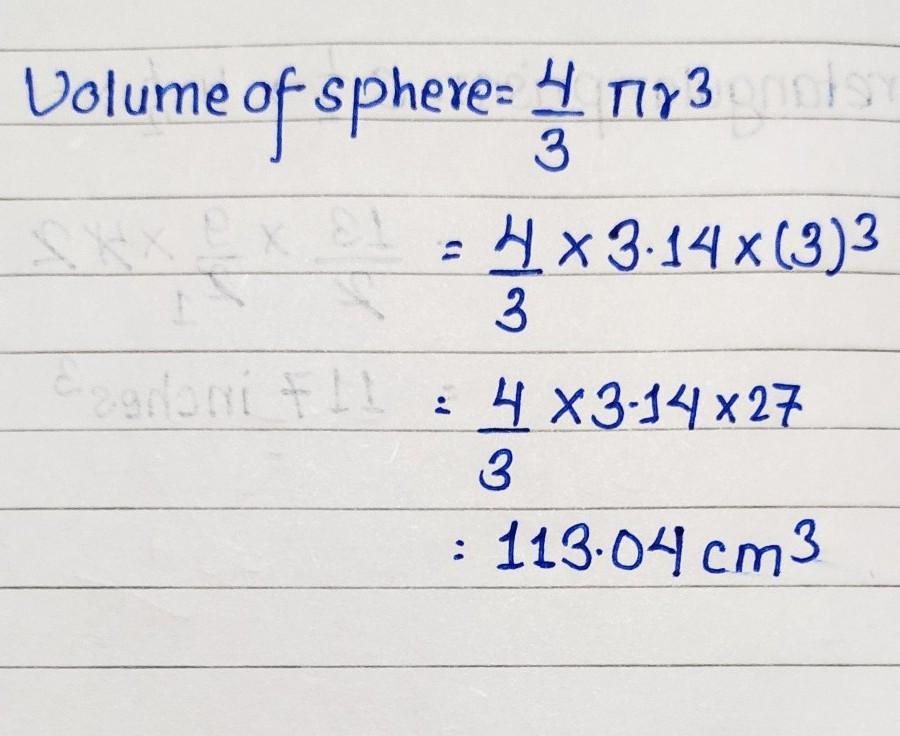 Volume of sphere = 4/3 πr³
= 4/3 × 3.14 × (3)³
= 4/3 × 3.14 × 27
= 113.04 cm³